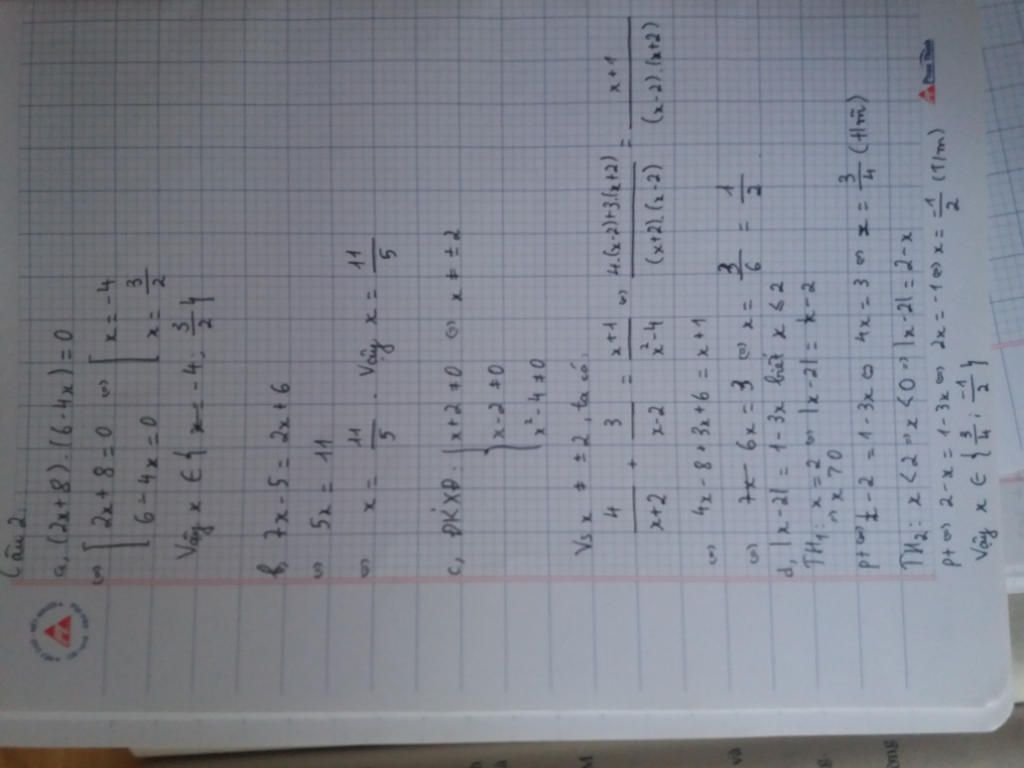 Câu 2.
a, (2x+8).(6-4x)=0
⇔ [ 2x+8=0 ⇔ [ x=-4
6-4x=0 x=3/2
Vậy x ∈ { -4; 3/2 }
b, 7x-5=2x+6
⇔ 5x = 11
⇔ x = 11/5 . Vậy x = 11/5
c, ĐKXĐ: { x+2 ≠0 ⇔ x ≠ ±2
x-2 ≠0
x²-4 ≠0
Vs x ≠ ±2, ta có:
4/(x+2) + 3/(x-2) = (x+1)/(x²-4) ⇔ (4.(x-2)+3.(x+2))/((x+2).(x-2)) = (x+1)/((x-2).(x+2))
⇔ 4x-8+3x+6 = x+1
⇔ 6x = 3 ⇔ x = 3/6 = 1/2
d, |x-2| = 1-3x biết x ≤ 2
TH1: x = 2 ⇔ |x-2| = x-2
⇒ x > 0
pt ⇔ x-2 = 1-3x ⇔ 4x = 3 ⇔ x = 3/4 (t/m)
TH2: x < 2 ⇒ x < 0 ⇒ |x-2| = 2-x
pt ⇔ 2-x = 1-3x ⇔ 2x = -1 ⇔ x = -1/2 (T/m)
Vậy x ∈ { 3/4 ; -1/2 }